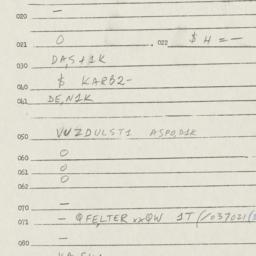 020 —
021 O . 022 $ H = —
030 DA,S+1K
$ KARB2-
040
041 DE,N1K
050 VVZDULST1 ASPO,D1K
060 O
061 O
062 O
070 —
071 — QFELTER xxQW 1T (/037021(
080 —